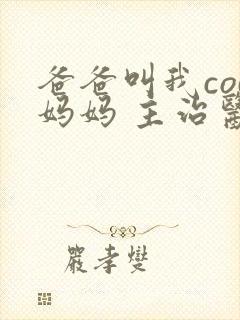 爸爸叫我co
妈妈 主治醫
嚴孝燮